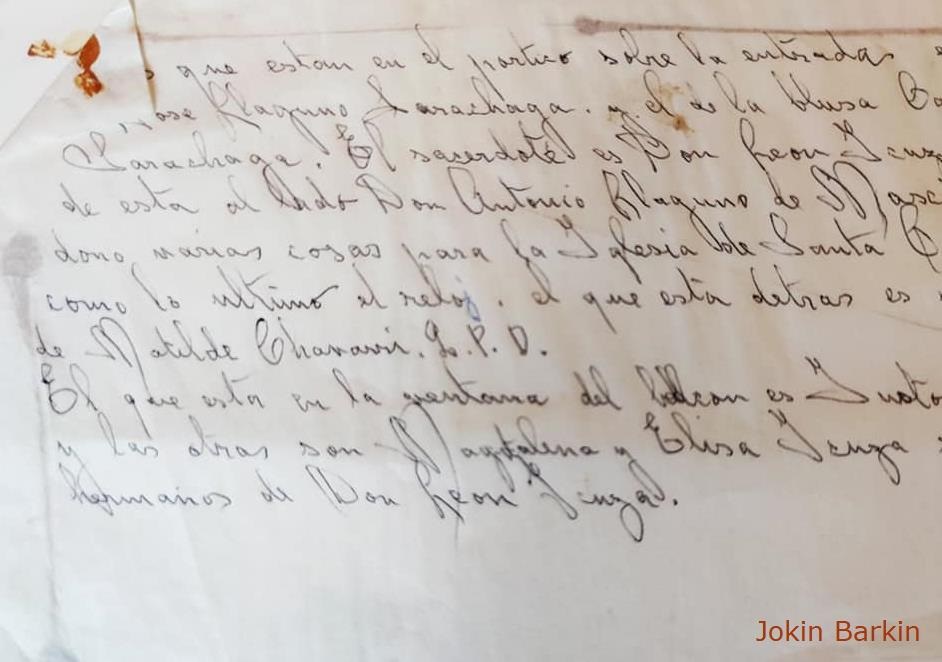 s que estan en el portico sobre la entradas
Jose Llaguno Larachaga. y el de la blusa
Larachaga. El sacerdote es Don Leon Icuza
de esta al lado Don Antonio Llaguno de
dono varias cosas para la Iglesia de Santa
como lo ultimo el reloj. el que esta detras es
de Matilde Chavarri. Q. P. D.
El que esta en la ventana del balcon es Justo
y las otras son Magdalena y Elisa Icuza
hermanos de Don Leon Icuza.
Jokin Barkin